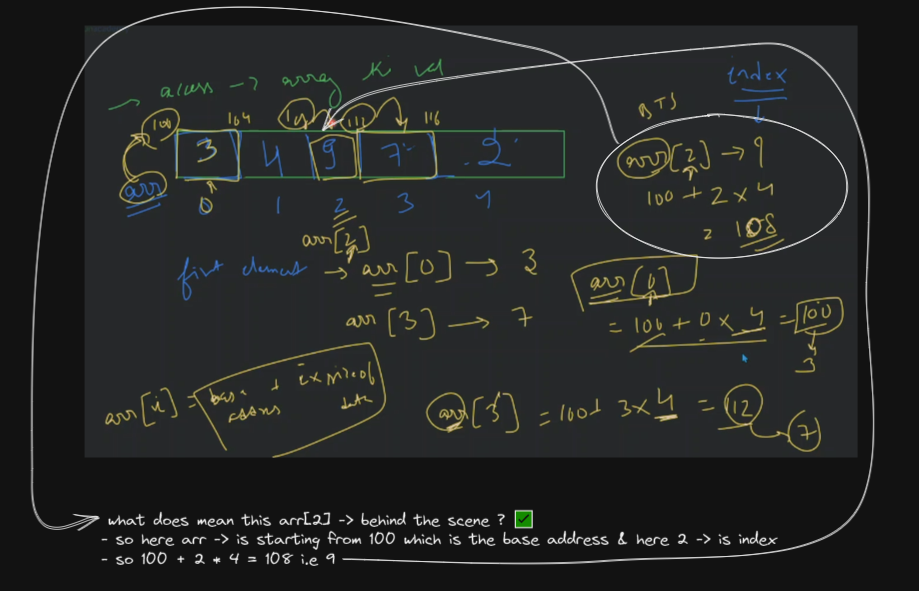 → access → array ki val
index
BTS
100 104 108 112 116
3 4 9 7 2
arr
0 1 2 3 4
arr[2] → 9
100 + 2 x 4
= 108
arr[2]
first element → arr[0] → 3
arr[3] → 7
arr[0]
= 100 + 0 x 4 = 100
3
arr[i] = base address + i x size of data
arr[3] = 100 + 3 x 4 = 112
7
what does mean this arr[2] -> behind the scene ? ✅
- so here arr -> is starting from 100 which is the base address & here 2 -> is index
- so 100 + 2 * 4 = 108 i.e 9